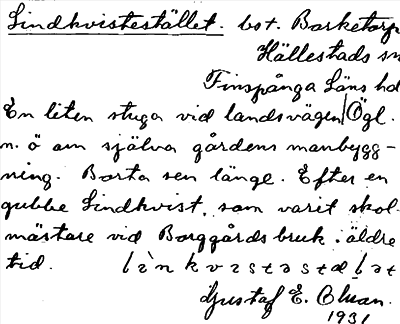 Lindkvistestället. bot. Barketorp
Hällestads sn
Finspånga Läns hd
En liten stuga vid landsvägen Ögl.
n. ö om själva gårdens manbygg-
ning. Borta sen länge. Efter en
gubbe Lindkvist, som varit skol-
mästare vid Borggårds bruk i äldre
tid.
Gustaf E. Olsson.
1931